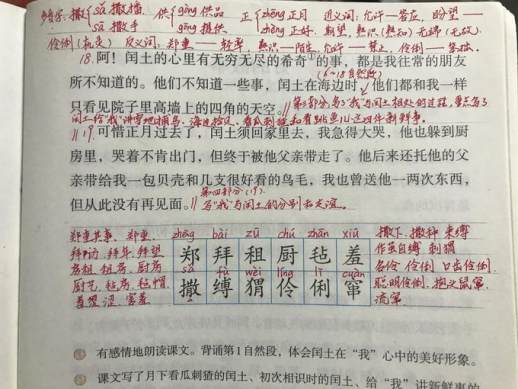 多音字：撒 sǎ 撒播 供 gōng 供品 正 zhēng 正月 近义词：允许——答应 盼望——
sā 撒手 gōng 提供 zhèng 正好 期望 熟识(熟知) 无端(无故)
伶俐(机灵) 反义词：郑重——轻率 熟识——陌生 允许——禁止 伶俐——笨拙
18.阿！闰土的心里有无穷无尽的希奇的事，都是我往常的朋友
(6~18自然段)
所不知道的。他们不知道一些事，闰土在海边时，他们都和我一样
只看见院子里高墙上的四角的天空。//第三部分 写了我与闰土相处的过程，重点写了
闰土给我讲雪地捕鸟、海边拾贝、看瓜刺猹和看跳鱼儿这四件新鲜事。
//19.可惜正月过去了，闰土须回家里去，我急得大哭，他也躲到厨
房里，哭着不肯出门，但终于被他父亲带走了。他后来还托他的父
亲带给我一包贝壳和几支很好看的鸟毛，我也曾送他一两次东西，
第四部分(19)
但从此没有再见面。//写"我"与闰土的分别和友谊。
郑重其事 郑重 zhèng bài zū chú zhān xiū 撒下 撒种 束缚
拜访 拜年 拜望 郑 拜 租 厨 毡 羞 作茧自缚 刺猬
房租 租房 厨房 sā fù wèi líng lì cuàn 名伶 伶俐 口齿伶俐
厨艺 毡房 毡帽 撒 缚 猬 伶 俐 窜 聪明伶俐 抱头鼠窜
害羞 流窜
有感情地朗读课文。背诵第1自然段，体会闰土在“我”心中的美好形象。
课文写了月下看瓜刺猹的闰土、初次相识时的闰土、给“我”讲新鲜事的